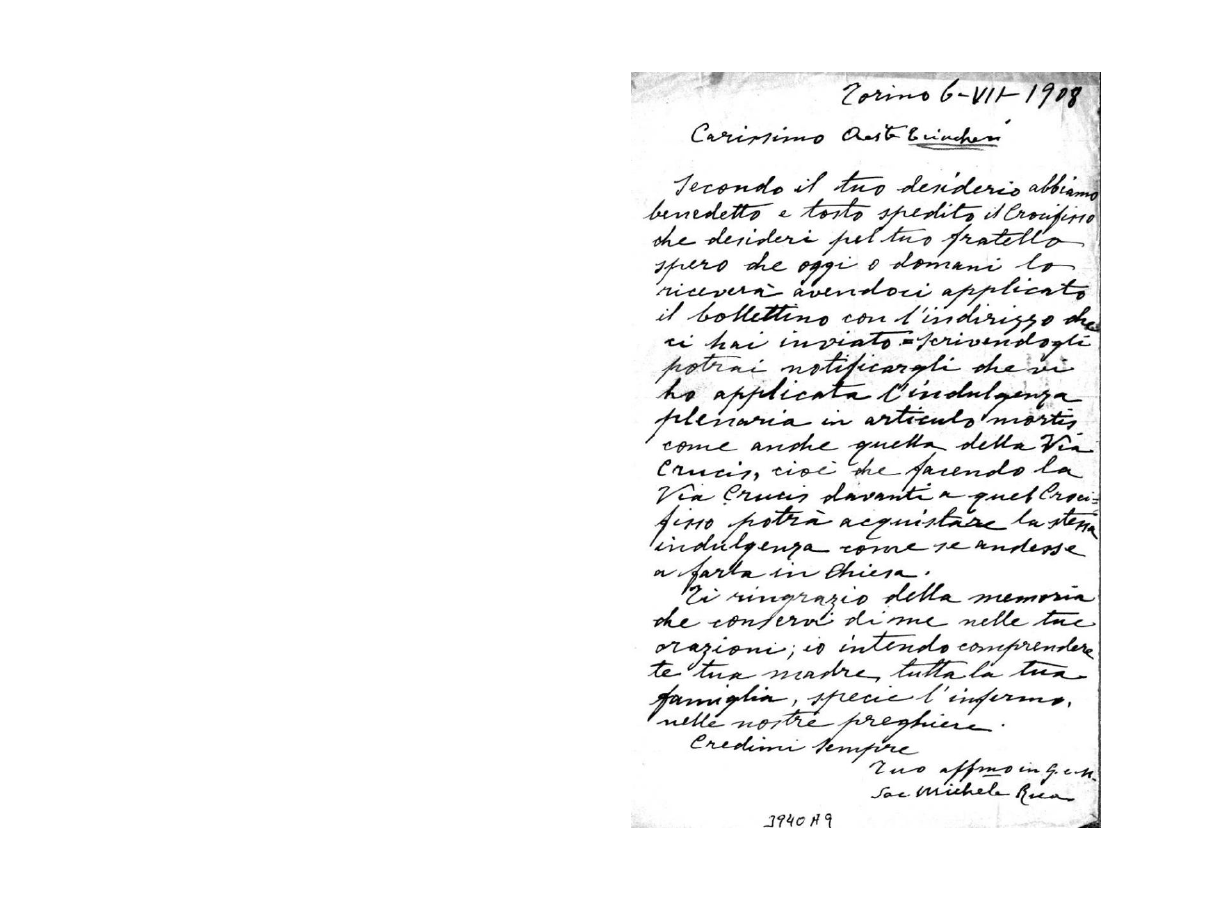 Torino 6-VII-1908
Carissimo Oreste Biancheri
Secondo il tuo desiderio abbiamo
benedetto e tosto spedito il Crocifisso
che desideri pel tuo fratello
spero che oggi o domani lo
riceverà avendoci applicato
il bollettino con l'indirizzo che
ci hai inviato = scrivendogli
potrai notificargli che vi
ho applicata l'indulgenza
plenaria in articulo mortis
come anche quella della Via
Crucis, cioè che facendo la
Via Crucis davanti a quel Croci=
fisso potrà acquistare la stessa
indulgenza come se andasse
a farla in Chiesa.
Ti ringrazio della memoria
che conservi di me nelle tue
orazioni; io intendo comprendere
te tua madre, tutta la tua
famiglia, specie l'infermo,
nelle nostre preghiere.
Credimi sempre
Tuo affmo in G. e M.
Sac Michele Rua
3940 A 9